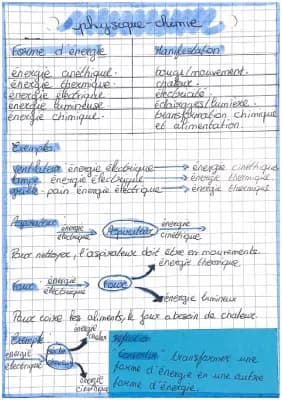 physique-chimie
Forme d'énergie
Manifestation
énergie cinéthique.
bouge/mouvement.
énergie thermique.
chaleur.
énergie électrique
électricité.
énergie lumineuse
éclairages/lumière.
énergie chimique.
transformation chimique
et alimentation.
Exemples
ventilateur énergie électrique → énergie cinéthique
lampe énergie électrique → énergie thermique
grille-pain énergie électrique → énergie thermique
Aspirateur :
énergie électrique → Aspirateur → énergie cinétique
Pour nettoyer, l'aspirateur doit être en mouvements.
énergie thermique
Four : énergie électrique → Four
énergie lumineux
Pour cuire les aliments, le four a besoin de chaleur.
Exemple :
énergie électrique
énergie
énergie cinétique
Convertir : transformer une
forme d'énergie en une autre
forme d'énergie.